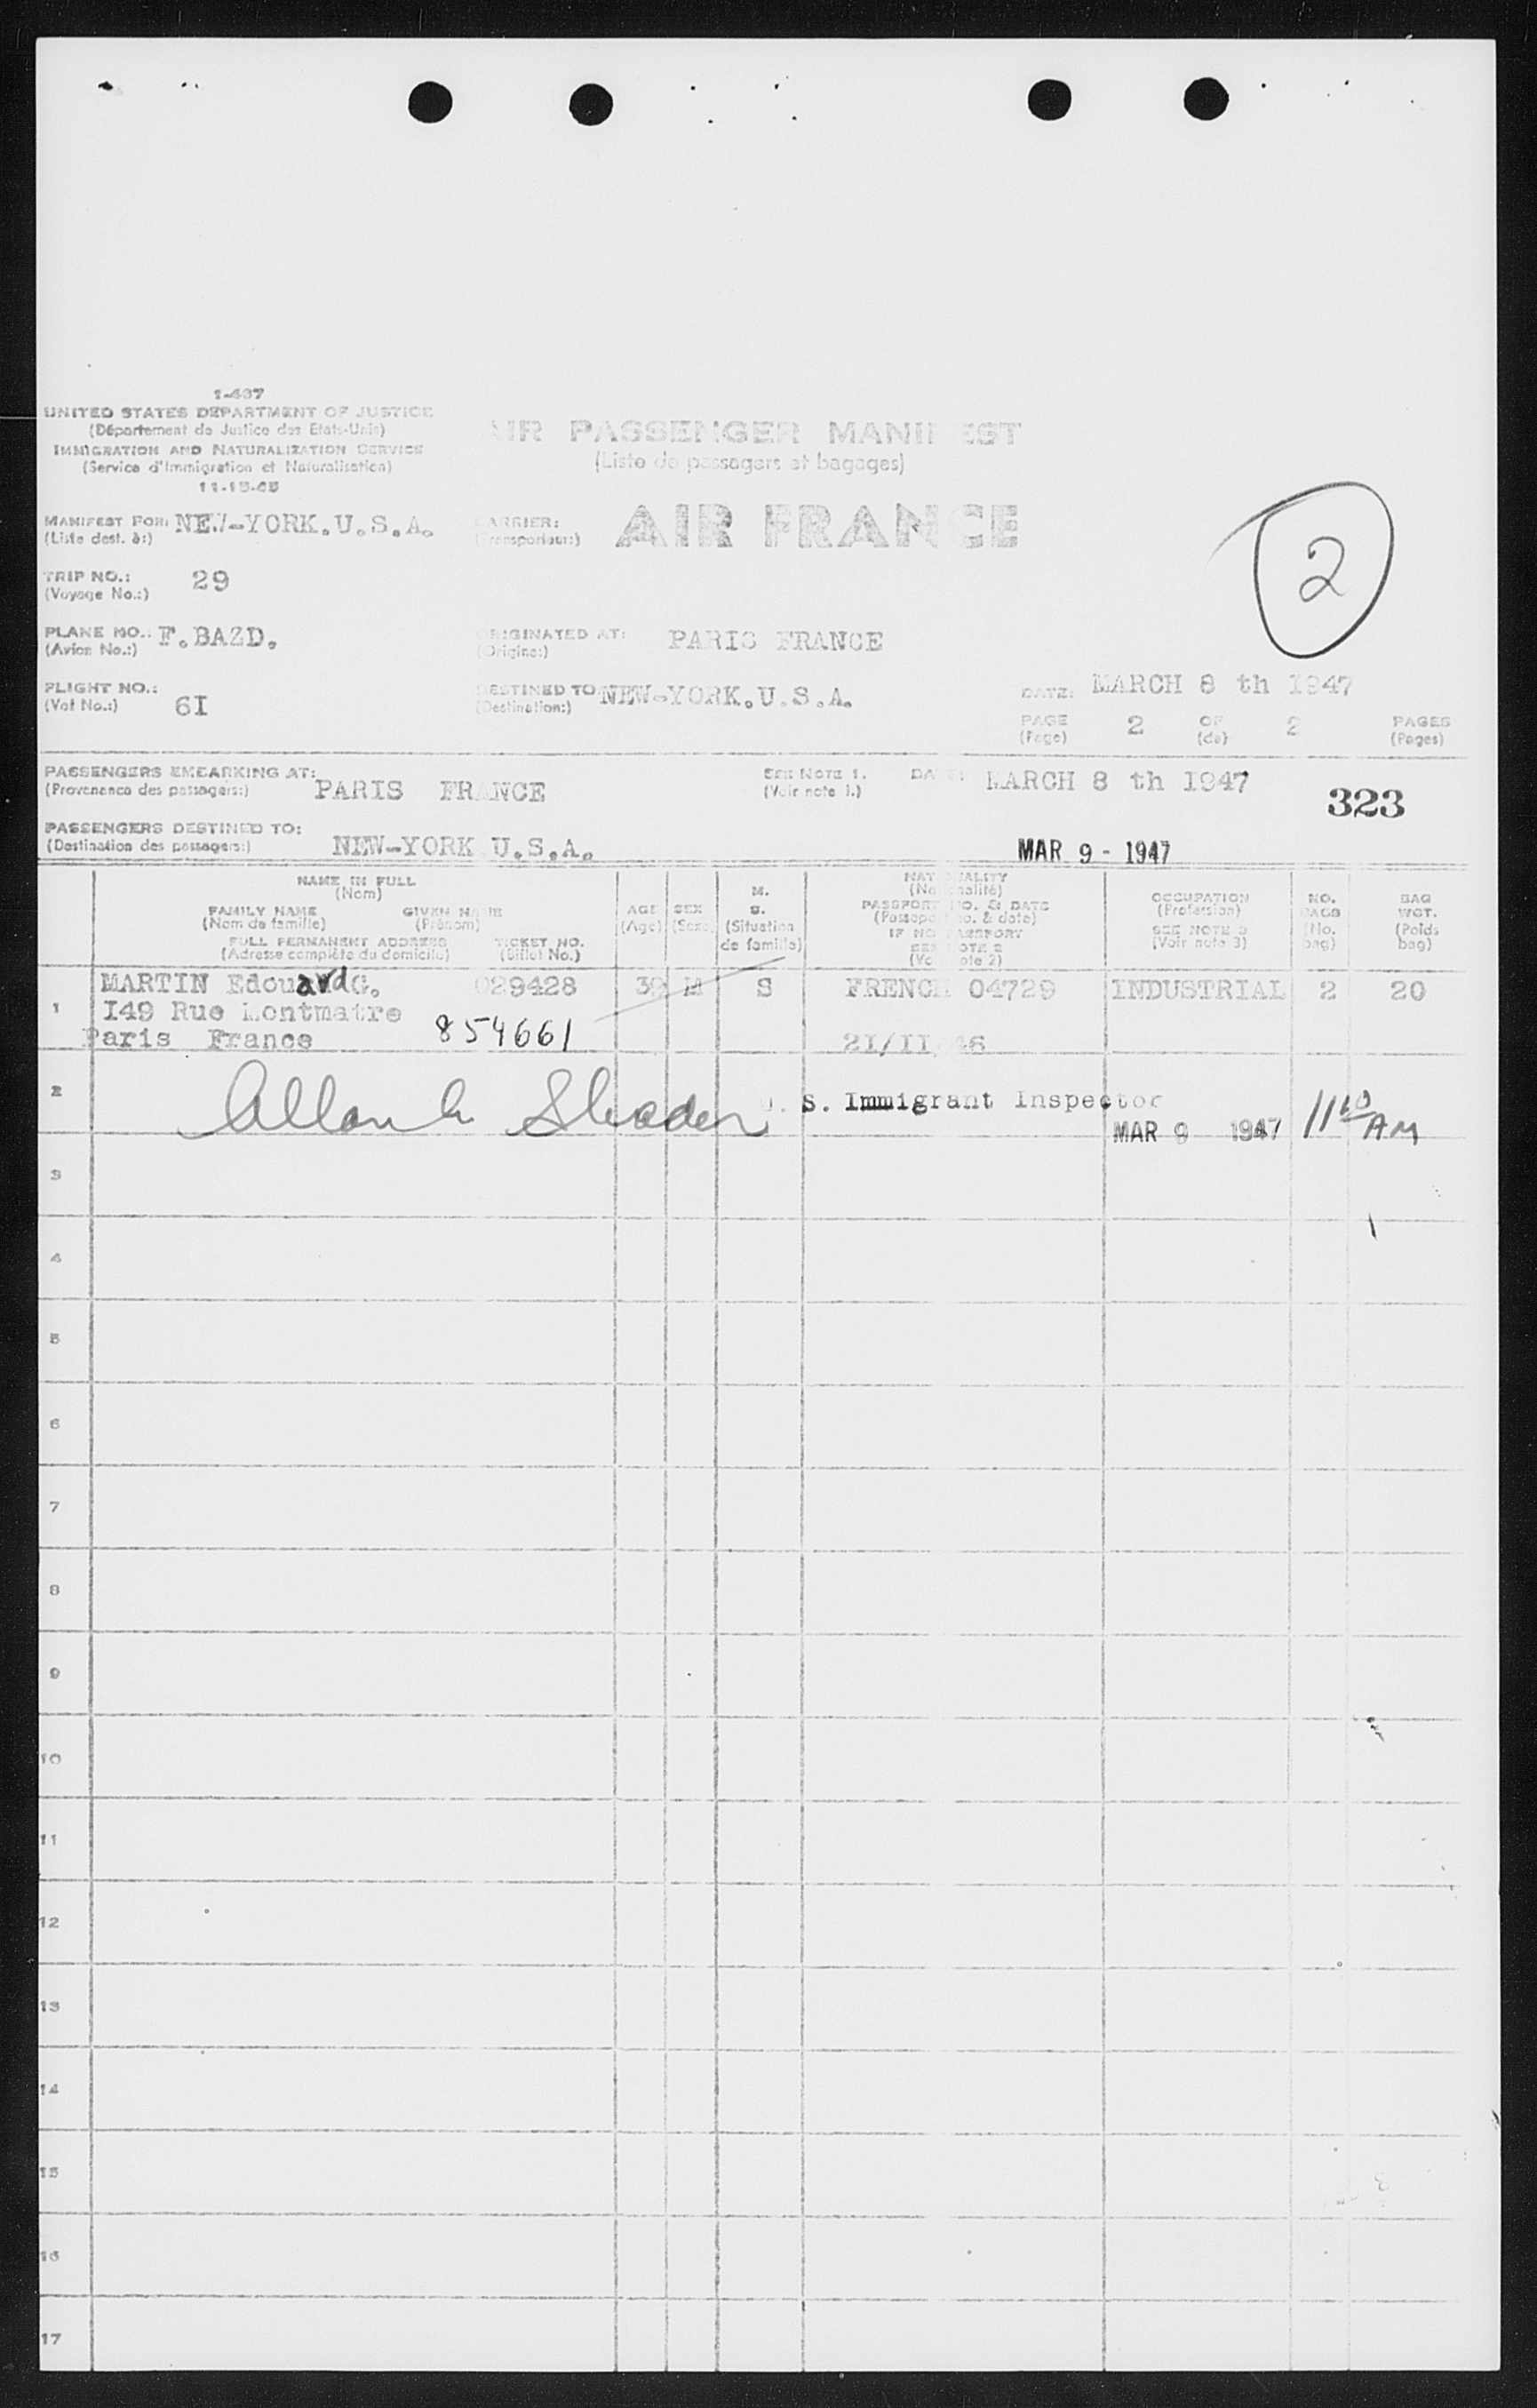 1-487
UNITED STATES DEPARTMENT OF JUSTICE
(Département de Justice des Etats-Unis)
IMMIGRATION AND NATURALIZATION SERVICE
(Service d'Immigration et Naturalisation)
11-15-45
AIR PASSENGER MANIFEST
(Liste de passagers et bagages)
MANIFEST FOR: NEW-YORK.U.S.A.
(Liste dest. à:)
CARRIER: AIR FRANCE
(Transporteur:)
2
TRIP NO.: 29
(Voyage No.:)
PLANE NO.: F.BAZD.
(Avion No.:)
ORIGINATED AT: PARIS FRANCE
(Origine:)
FLIGHT NO.: 6I
(Vol No.:)
DESTINED TO: NEW-YORK.U.S.A.
(Destination:)
DATE: MARCH 8 th 1947
PAGE 2 OF 2 PAGES
(Page) (de) (Pages)
PASSENGERS EMBARKING AT: PARIS FRANCE
(Provenance des passagers:)
SEE NOTE 1.
(Voir note 1.)
DATE: MARCH 8 th 1947
323
PASSENGERS DESTINED TO: NEW-YORK U.S.A.
(Destination des passagers:)
MAR 9 - 1947
NAME IN FULL
(Nom)
FAMILY NAME GIVEN NAME
(Nom de famille) (Prénom)
FULL PERMANENT ADDRESS TICKET NO.
(Adresse complète du domicile) (Billet No.)
AGE
(Age)
SEX
(Sexe)
M.
S.
(Situation
de famille)
NATIONALITY
(Nationalité)
PASSPORT NO. & DATE
(Passeport no. & date)
IF NO PASSPORT
SEE NOTE 2
(Voir note 2)
OCCUPATION
(Profession)
SEE NOTE 3
(Voir note 3)
NO.
BAGS
(No.
bag)
BAG
WGT.
(Poids
bag)
1 MARTIN EdouardG. 029428 39 M S FRENCH 04729 INDUSTRIAL 2 20
I49 Rue Montmatre
Paris France 854661 2I/II/46
2 U. S. Immigrant Inspector
MAR 9 1947 11 10 AM
3
4
5
6
7
8
9
10
11
12
13
14
15
16
17